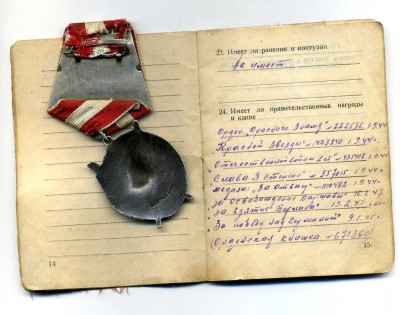 23. Имеет ли ранения и контузии
не имеет
24. Имеет ли правительственные награды
и какие
Орден „Красного Знамя" № 222676 1.9.44г.
Красной Звезды 1.9.44г.
Отечественной 1.9.44г.
Слава 3 степени № 357015 1.9.44г.
медали: За Отвагу 1.9.44г.
за освобождение Варшавы 47
за взятие Берлина 47
За победу над Германией 9.5.45г.
(Орденская книжка № 672360)
14
15